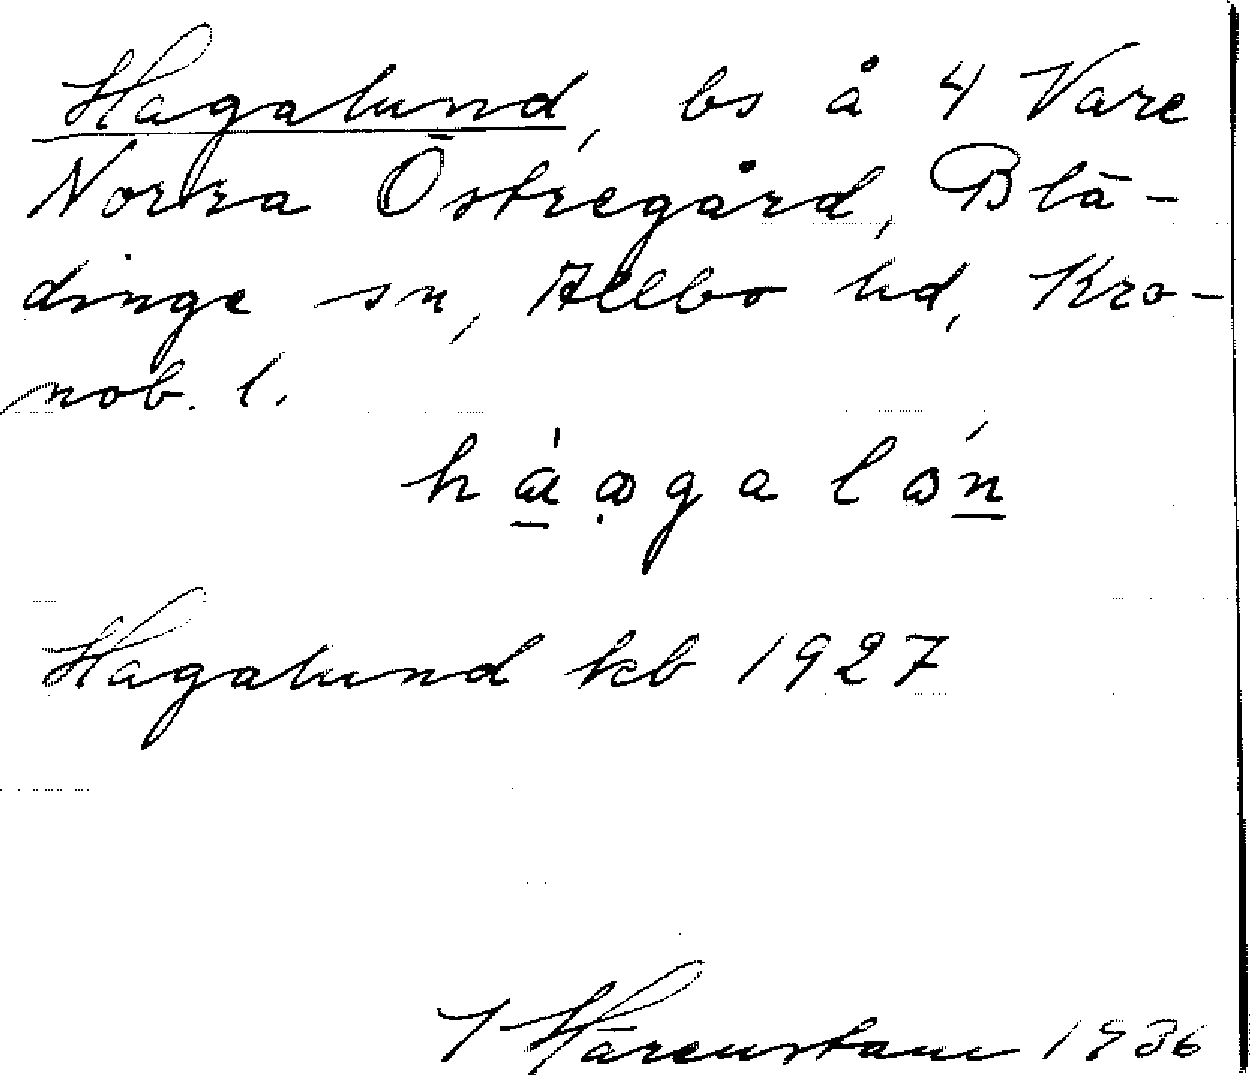 Hagalund, bs å 4 Vare
Norra Östregård, Blä-
dinge sn, Allbo hd, Kro-
nob. l.
Hagalund kb 1927
Härenstam 1936